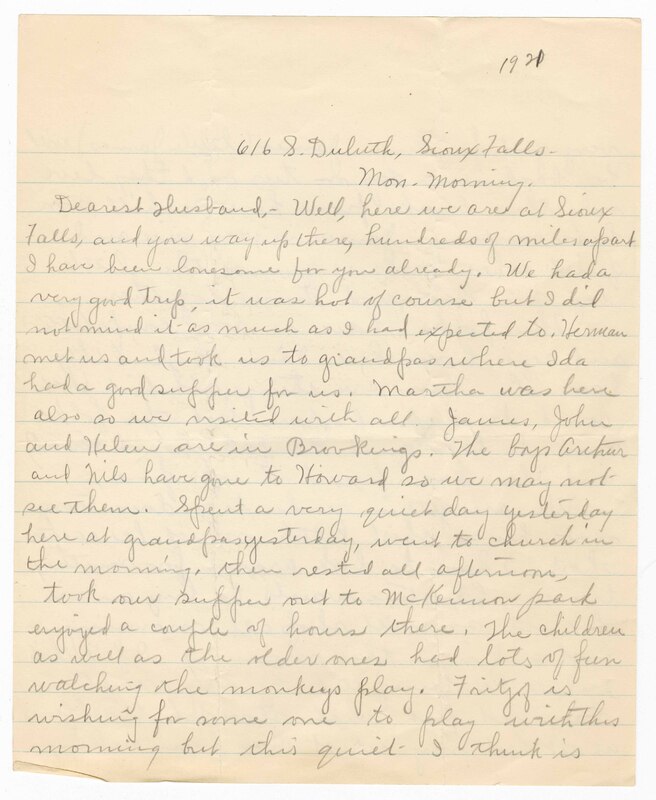 1921
616 S. Duluth, Sioux Falls-
Mon. Morning.
Dearest Husband,- Well, here we are at Sioux
Falls, and you way up there, hundreds of miles apart
I have been lonesome for you already. We had a
very good trip, it was hot of course but I did
not mind it as much as I had expected to. Herman
met us and took us to grandpas where Ida
had a good supper for us. Martha was here
also so we visited with all. James, John
and Helen are in Brookings. The boys Arthur
and Nils have gone to Howard so we may not
see them. Spent a very quiet day yesterday
here at grandpas yesterday, went to church in
the morning. then rested all afternoon,
took our supper out to McKennon park
enjoyed a couple of hours there. The children
as well as the older ones had lots of fun
watching the monkeys play. Fritjof is
wishing for some one to play with this
morning but this quiet- I think is